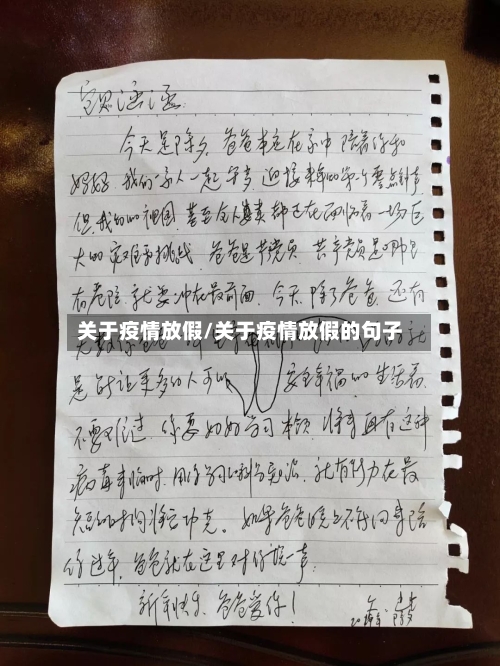 宝贝涵涵：
今天是除夕，爸爸本应在家中陪着你和
妈妈，我们家人一起守岁，迎接来年的第一个零点钟声
但，我们的祖国，甚至全人类都正在面临着一场巨
大的灾难和挑战，爸爸是共产党员，共产党员是哪里
有危险，就要冲在最前面，今天，除了爸爸，还有
关于疫情放假/关于疫情放假的句子
是能让更多的人可以 安全幸福的生活着，
不要难过，你要好好学习本领，将来再有这种
病毒来临时，用你学习的科学知识，就有能力在最
短的时间将它攻克。如果爸爸晚上不能回来陪
你过年，爸爸就在这里对你说一声：
新年快乐，爸爸爱你！
除夕